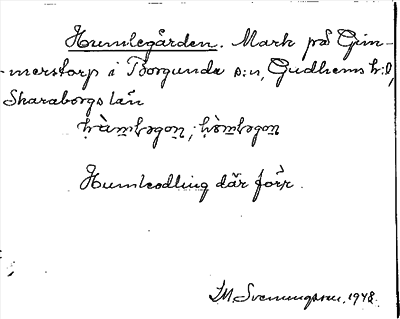 Humlegården. Mark på Gim-
merstorp i Borgunda s:n, Gudhems h:d,
Skaraborgs län
Humleodling där förr.
Svenungsson. 1948.